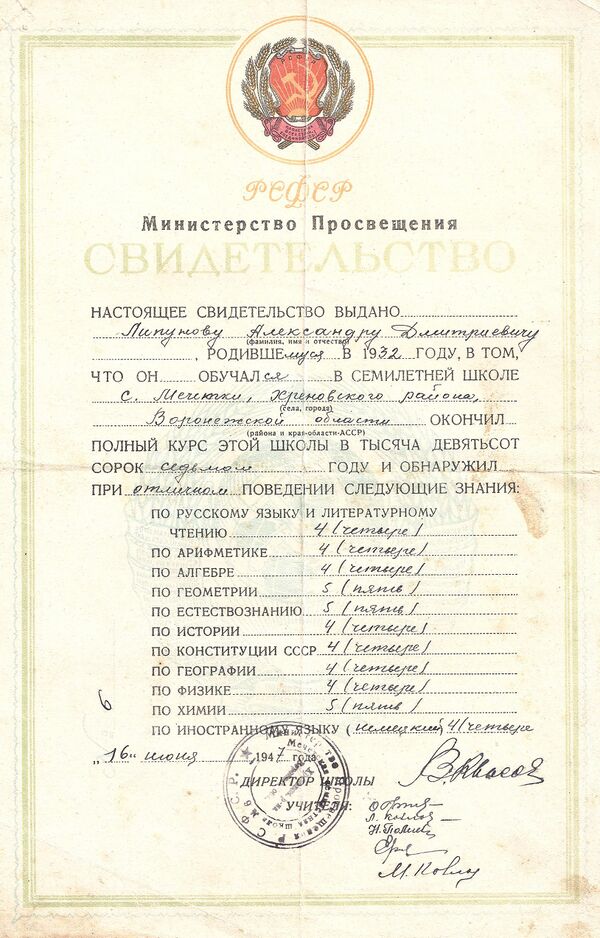 РСФСР
Министерство Просвещения
СВИДЕТЕЛЬСТВО
НАСТОЯЩЕЕ СВИДЕТЕЛЬСТВО ВЫДАНО
Липунову Александру Дмитриевичу
(фамилия, имя и отчество)
, РОДИВШЕмуся В 1932 ГОДУ, В ТОМ,
ЧТО ОН ОБУЧАЛся В СЕМИЛЕТНЕЙ ШКОЛЕ
с. Мечетки, Хреновского района,
(села, города)
Воронежской области ОКОНЧИЛ
(района и края-области-АССР)
ПОЛНЫЙ КУРС ЭТОЙ ШКОЛЫ В ТЫСЯЧА ДЕВЯТЬСОТ
СОРОК седьмом ГОДУ И ОБНАРУЖИЛ
ПРИ отличном ПОВЕДЕНИИ СЛЕДУЮЩИЕ ЗНАНИЯ:
ПО РУССКОМУ ЯЗЫКУ И ЛИТЕРАТУРНОМУ
ЧТЕНИЮ 4 (четыре)
ПО АРИФМЕТИКЕ 4 (четыре)
ПО АЛГЕБРЕ 4 (четыре)
ПО ГЕОМЕТРИИ 5 (пять)
ПО ЕСТЕСТВОЗНАНИЮ 5 (пять)
ПО ИСТОРИИ 4 (четыре)
ПО КОНСТИТУЦИИ СССР 4 (четыре)
ПО ГЕОГРАФИИ 4 (четыре)
ПО ФИЗИКЕ 4 (четыре)
6
ПО ХИМИИ 5 (пять)
ПО ИНОСТРАННОМУ ЯЗЫКУ (немецкий) 4 (четыре
„16" июня 1947 года
ДИРЕКТОР ШКОЛЫ
УЧИТЕЛЯ: